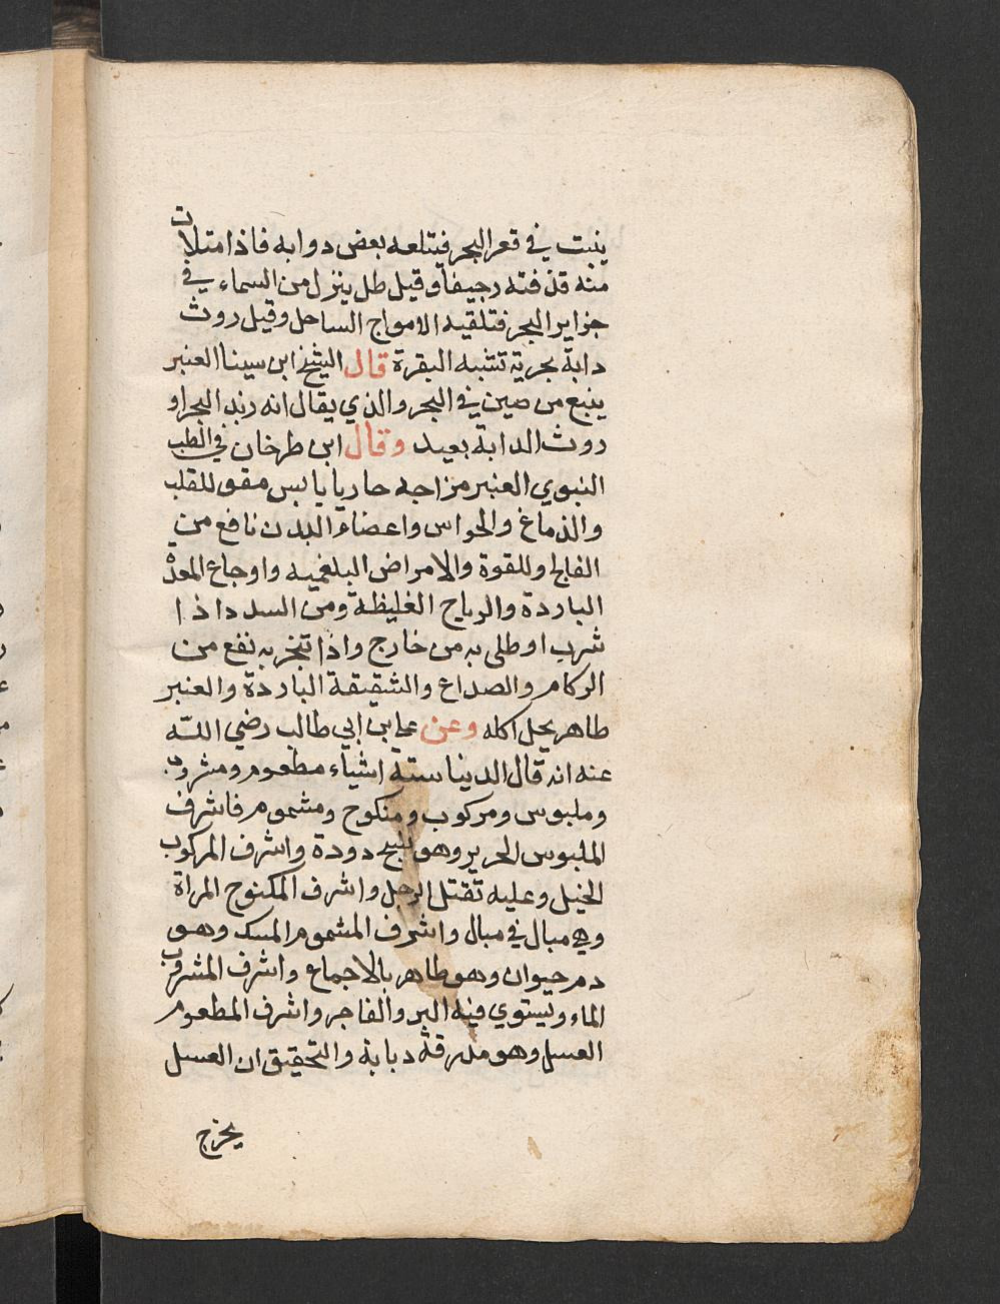 ينبت في قعر البحر فيبتلعه بعض دوابه فاذا امتلات
منه قذفته رجيعا وقيل طل ينزل من السماء في
جزاير البحر فتلقيه الامواج الساحل وقيل روث
دابة بحرية تشبه البقرة قال الشيخ ابن سينا العنبر
ينبع من عين في البحر والذي يقال انه زبد البحر او
روث الدابة بعيد وقال ابن طرخان في الطب
النبوي العنبر مزاجه حار يابس مقو للقلب
والدماغ والحواس واعضاء البدن نافع من
الفالج واللقوة والامراض البلغمية واوجاع المعدة
الباردة والرياح الغليظة ومن السدد اذا
شرب او طلي به من خارج واذا تبخر به نفع من
الزكام والصداع والشقيقة الباردة والعنبر
طاهر يحل اكله وعن علي بن ابي طالب رضي الله
عنه انه قال الدنيا ستة اشياء مطعوم ومشروب
وملبوس ومركوب ومنكوح ومشموم فاشرف
الملبوس الحرير وهو نسج دودة واشرف المركوب
الخيل وعليه تقتل الرجل واشرف المكنوح المراة
وهي مبال في مبال واشرف المشموم المسك وهو
دم حيوان وهو طاهر بالاجماع واشرف المشروب
الماء ويستوي فيه البر والفاجر واشرف المطعوم
العسل وهو مذرقة دبابة والتحقيق ان العسل
يخرج